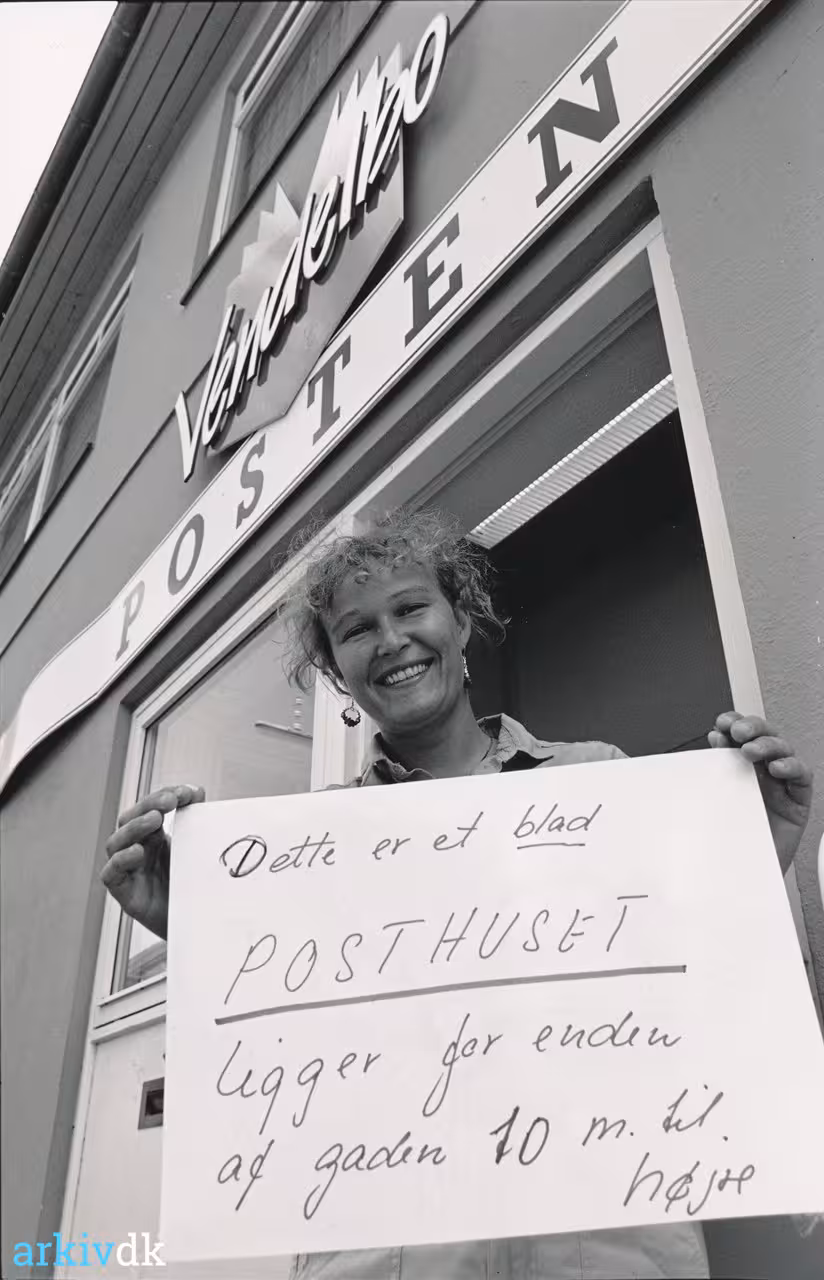 Vendelbo
POSTEN
Dette er et blad
POSTHUSET
ligger for enden
af gaden 10 m. til
højre
arkivdk